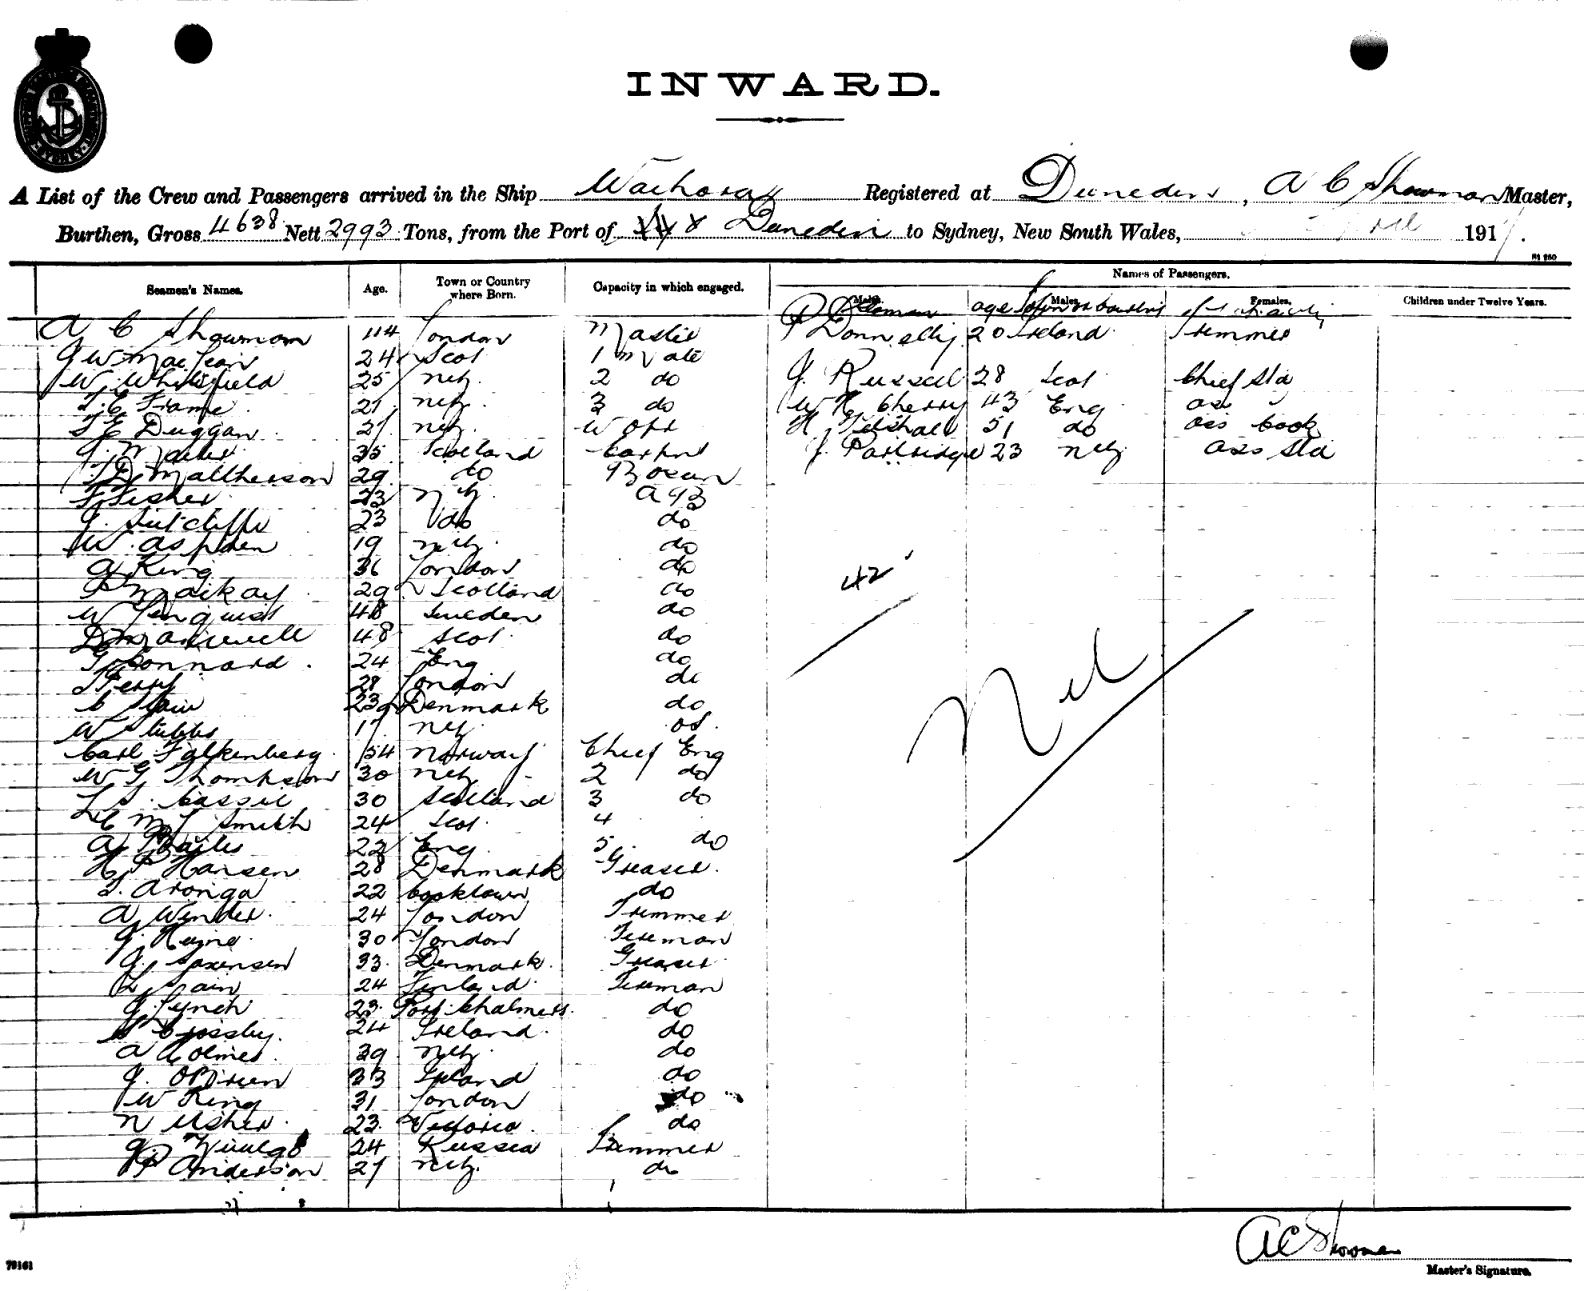 INWARD.
A List of the Crew and Passengers arrived in the Ship Waihora Registered at Dunedin, A C Showman Master,
Burthen, Gross 4638 Nett 2993 Tons, from the Port of Dunedin to Sydney, New South Wales, 191
Seamen's Names. Age. Town or Country where Born. Capacity in which engaged. Names of Passengers.
Males. Males. Females. Children under Twelve Years.
A C Showman 44 London Master P Donnelly 20 Ireland Trimmer
24 Scot 1 Mate
W. Whitefield 25 nz. 2 do J. Russell 28 Scot Chief Std
T. C Frame 21 nz. 3 do W H Cherry 43 Eng
T E Duggan 21 nz. W Opr H 51 do ass cook
35 Scotland Carptr J. Partridge 23 nz ass Std
D Mattherson 29 do Bosun
F Fisher 23 nz AB
J. Sutcliffe 23 do do
W. Aspden 19 nz. do
A King 36 London do
Mackay 29 Scotland do
W 48 Sweden do
D Maxwell 48 Scot do
G Bonnard 24 Eng do
T Perry 28 London do
C 23 Denmark do
W Stubbs 17 nz. os.
Carl Falkenberg 54 Norway Chief Eng
W G Thompson 30 nz 2 do
L S. Cassie 30 Scotland 3 do
Smith 24 Scot. 4
A Bailes 22 Eng 5 do
H P Hansen 28 Denmark Greaser.
T. Aronga 22 Cooktown do
A Winder 24 London Trimmer
J. Heyne 30 London Fireman
J. Sorensen 33 Denmark. Greaser
24 Finland Fireman
J. Lynch 23 Port Chalmers do
Crossley 24 Ireland do
A Holmes 39 nz. do
J. O'Brien 33 Ireland do
W King 31 London do
N Usher 23 Victoria. do
24 Russia Trimmer
P Anderson 27 nz. do
42
Nil
A C Showman
Master's Signature.
79161